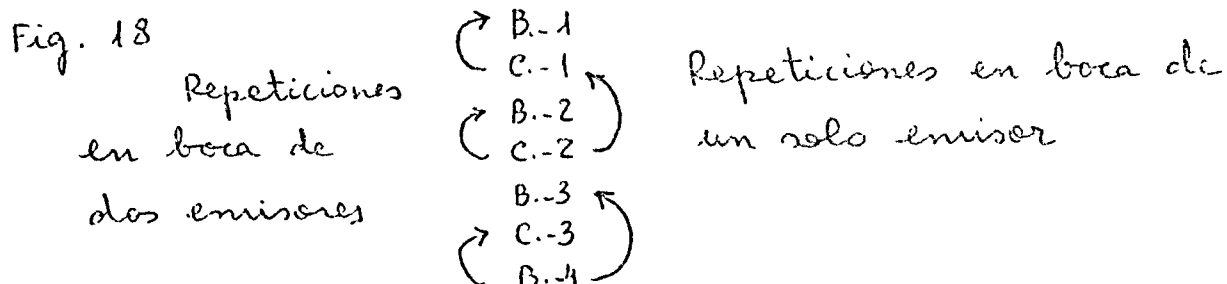 Fig. 18
Repeticiones
en boca de
dos emisores
B.-1
C.-1
B.-2
C.-2
B.-3
C.-3
B.-4
Repeticiones en boca de
un solo emisor